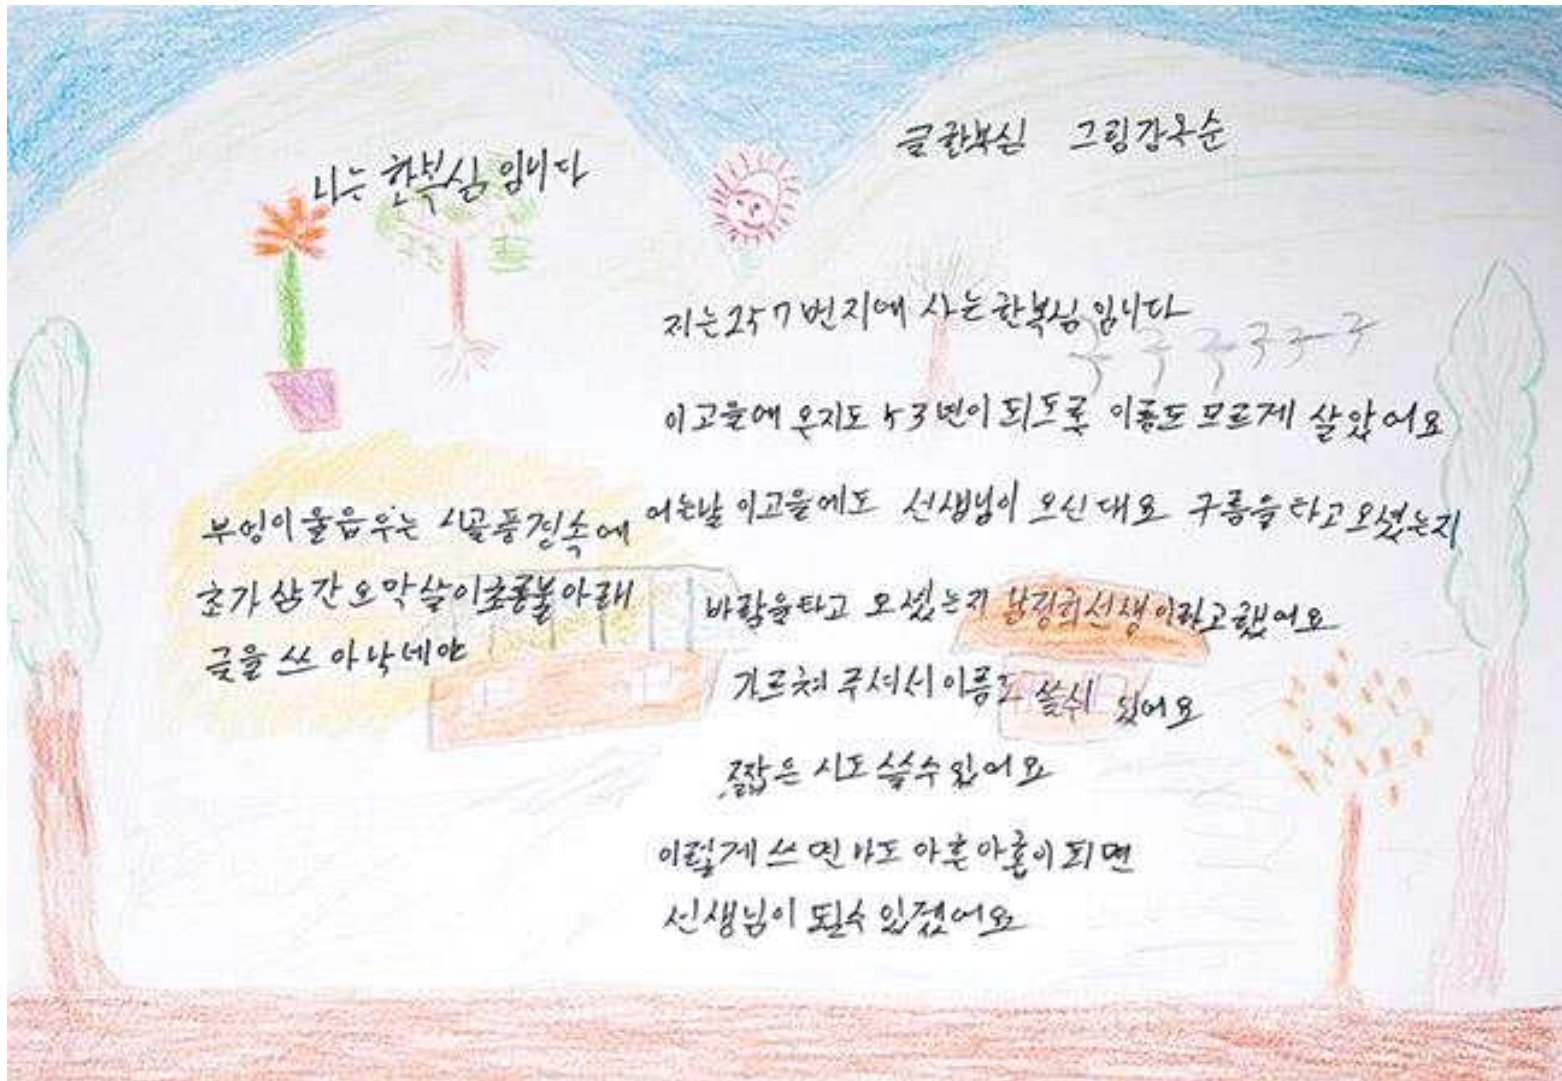 나는 한복심 입니다
글 한복심 그림 감옥순
저는 257번지에 사는 한복심 입니다
이고을에 온지도 53년이 되도록 이름도 모르게 살았어요
어는날 이고을에도 선생님이 오신대요 구름을 타고 오셨는지
바람을 타고 오셨는지 선생이라고 했어요
가르쳐 주셔서 이름도 쓸수 있어요
짧은 시도 쓸수 있어요
이렇게 쓰면 나도 아흔아홉이 되면
선생님이 될수 있겠어요
부엉이 울음 우는 시골풍경속에
초가 삼간 오막살이 초롱불아래
글을 쓰 아낙네야